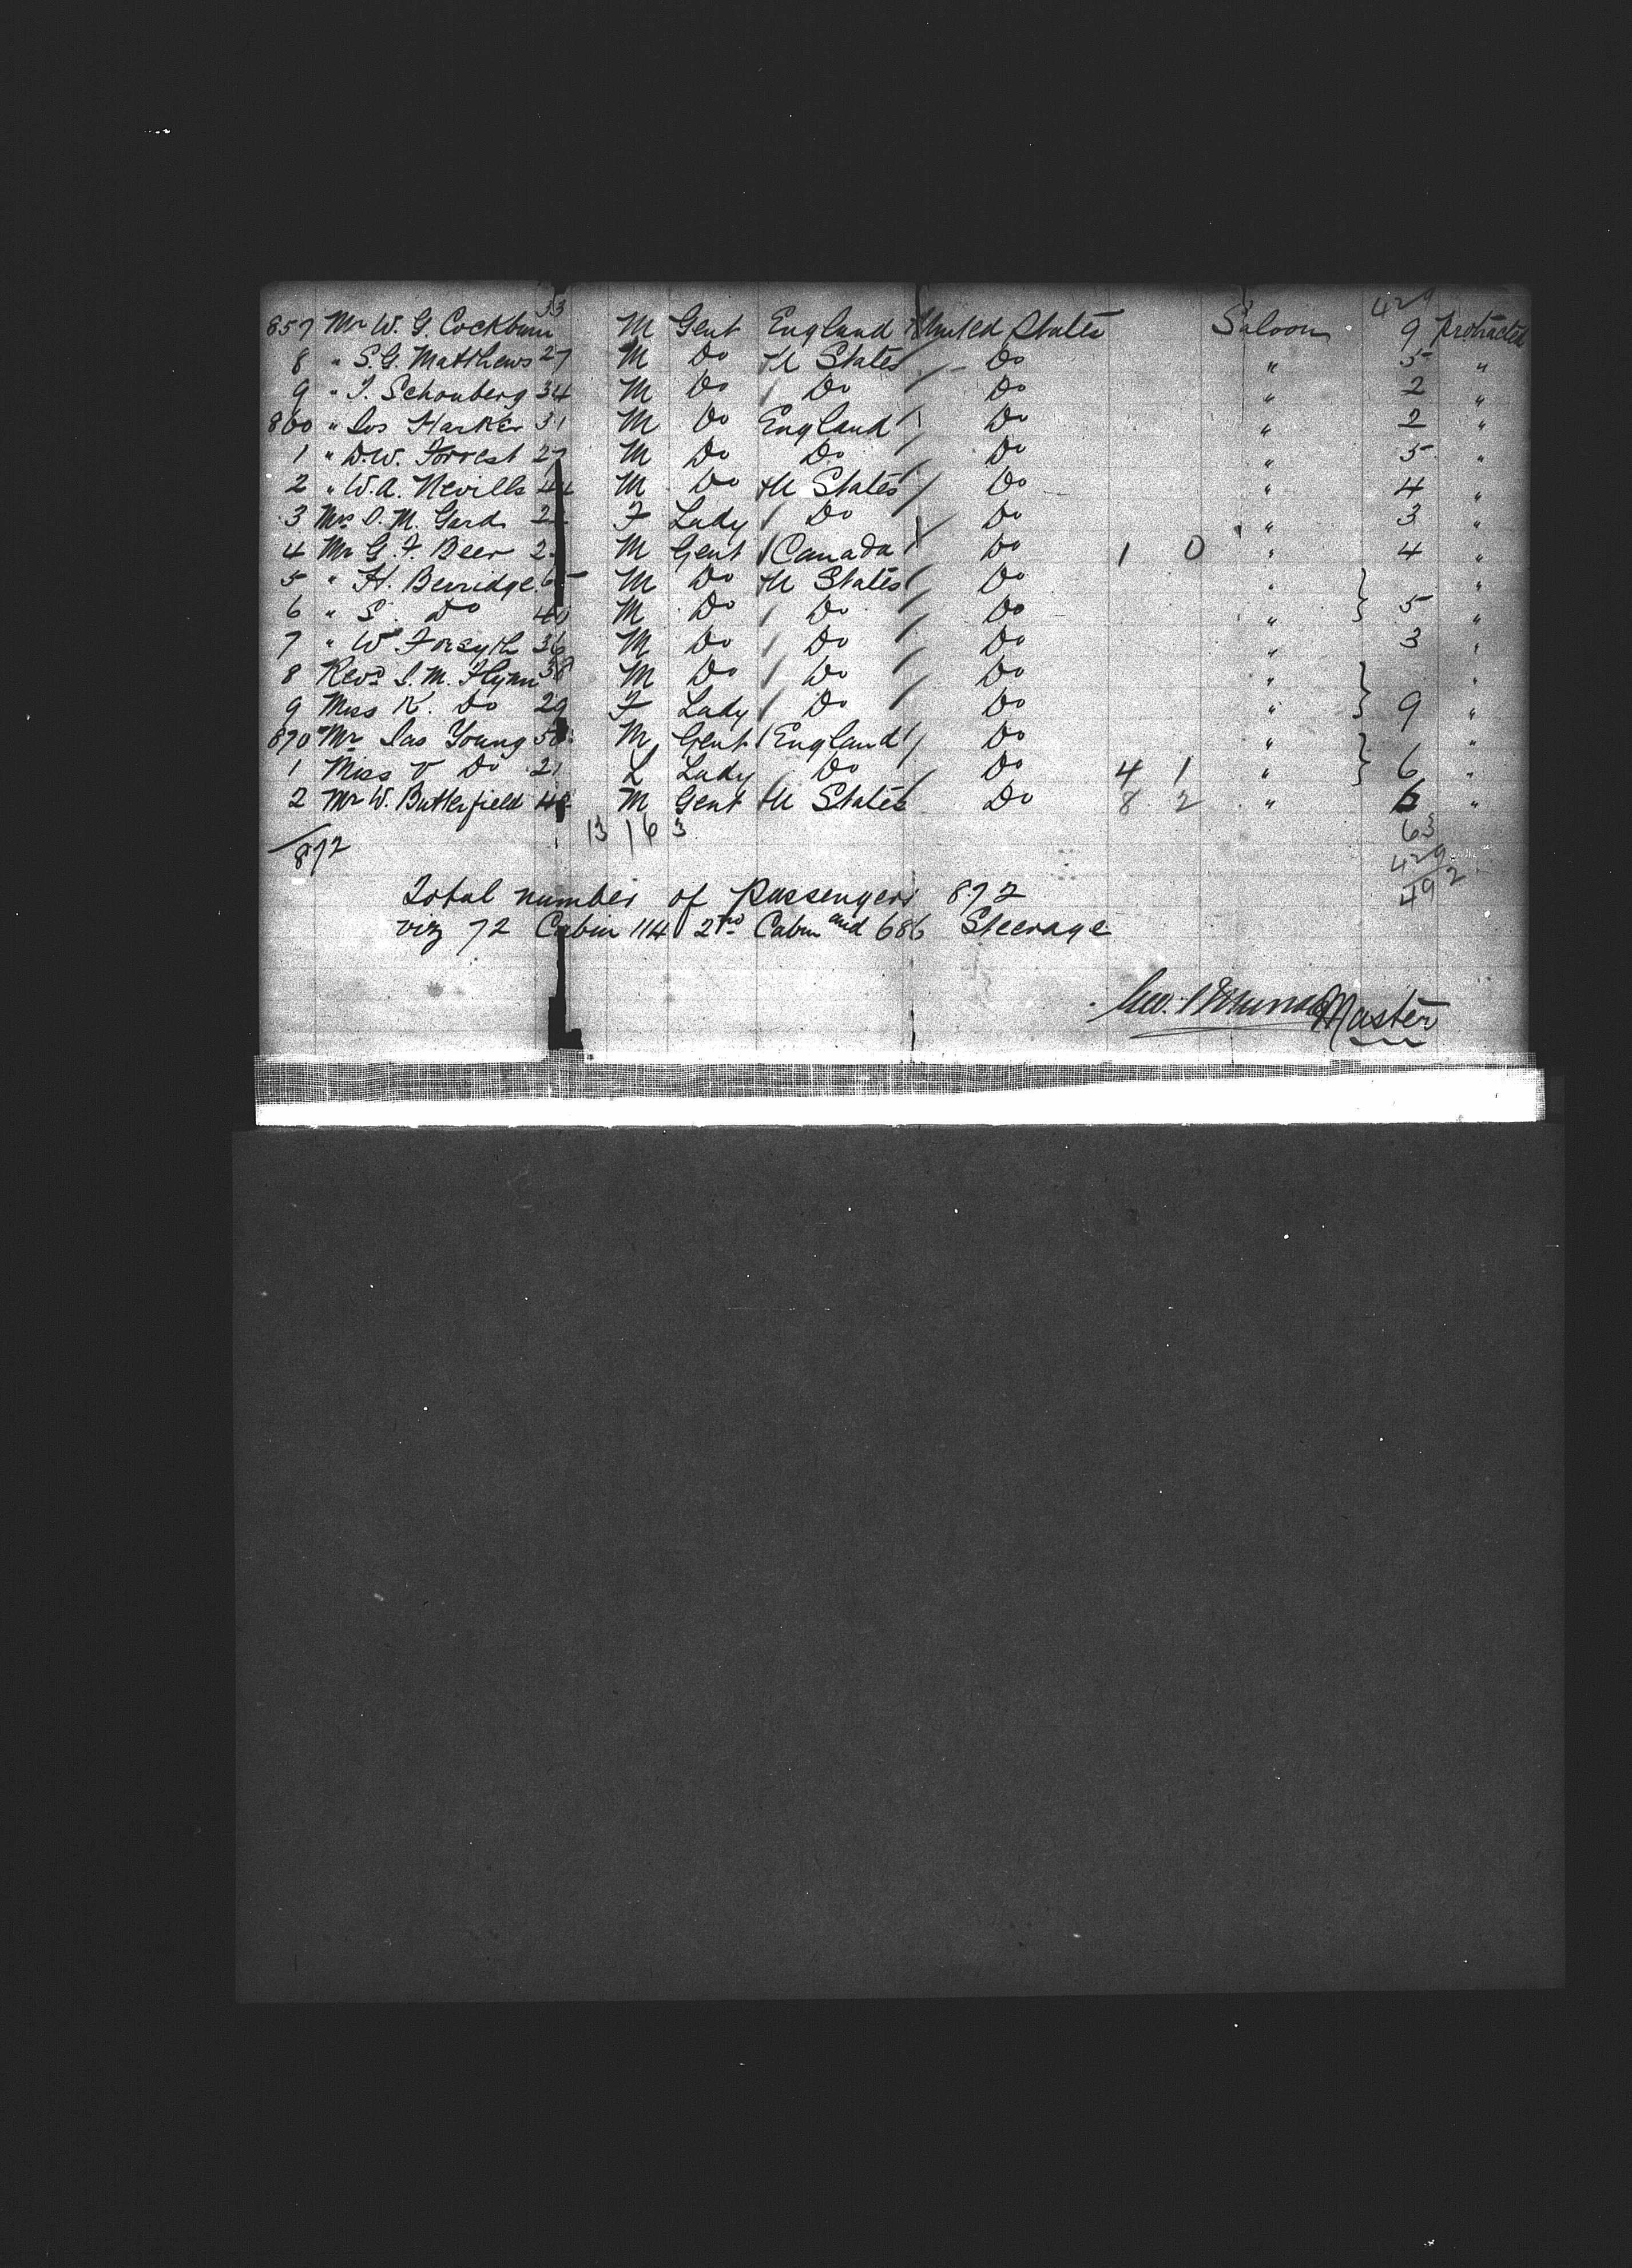 33 429
857 Mr W. G Cockburn M Gent England United States Saloon 9 Protracted
8 " S. G. Matthews 27 M Do U States Do " 5 "
9 " J. Schonberg 34 M Do Do Do " 2 "
860 " Jos Harker 31 M Do England Do " 2 "
1 " D. W. Forrest 27 M Do Do Do " 5 "
2 " W. A. Nevills M Do U States Do " 4 "
3 Mrs M. Gard F Lady Do Do " 3 "
4 Mr G. F. Beer M Gent Canada Do 1 0 " 4 "
5 " H. Berridge M Do U States Do " "
6 " S. Do 40 M Do Do Do " } 5 "
7 " W Forsyth 36 M Do Do Do " 3 "
8 Revd J. M. Flynn 38 M Do Do Do " "
9 Miss K. Do 29 F Lady Do Do " } 9 "
870 Mr Jas Young M Gent England Do " "
1 Miss V Do 21 L Lady Do Do 4 1 " } 6 "
2 Mr W. Butterfield M Gent U States Do 8 2 " 6 "
872 13 16 3 63
429
492
Total number of Passengers 872
viz 72 Cabin 114 2nd Cabin and 686 Steerage
Master